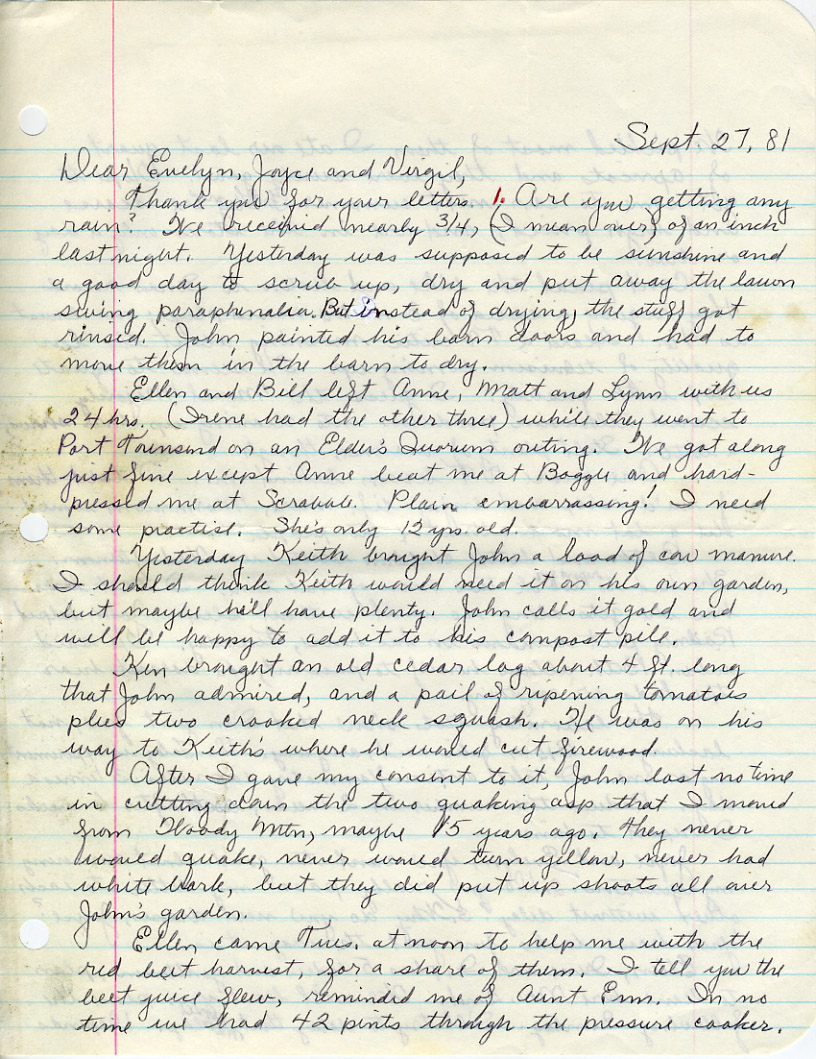 Sept. 27, 81
Dear Evelyn, Joyce and Virgil,
Thank you for your letters. 1. Are you getting any
rain? We received nearly 3/4, (I mean over) of an inch
last night. Yesterday was supposed to be sunshine and
a good day to scrub up, dry and put away the lawn
swing paraphenalia. But instead of drying, the stuff got
rinsed. John painted his barn doors and had to
move them in the barn to dry.
Ellen and Bill left Anne, Matt and Lynn with us
24 hrs. (Irene had the other three) while they went to
Port Townsend on an Elder's Quorum outing. We got along
just fine except Anne beat me at Boggle and hard-
pressed me at Scrabble. Plain embarrassing! I need
some practise. She's only 12 yrs. old.
Yesterday Keith brought John a load of cow manure.
I should think Keith would need it on his own garden,
but maybe he'll have plenty. John calls it gold and
will be happy to add it to his compost pile.
Ken brought an old cedar log about 4 ft. long
that John admired, and a pail of ripening tomatoes
plus two crooked neck squash. He was on his
way to Keith's where he would cut firewood.
After I gave my consent to it, John lost no time
in cutting down the two quaking asp that I moved
from Woody Mtn, maybe 15 years ago. They never
would quake, never would turn yellow, never had
white bark, but they did put up shoots all over
John's garden.
Ellen came Tues. at noon to help me with the
red beet harvest, for a share of them. I tell you the
beet juice flew, reminded me of Aunt Emm. In no
time we had 42 pints through the pressure cooker.